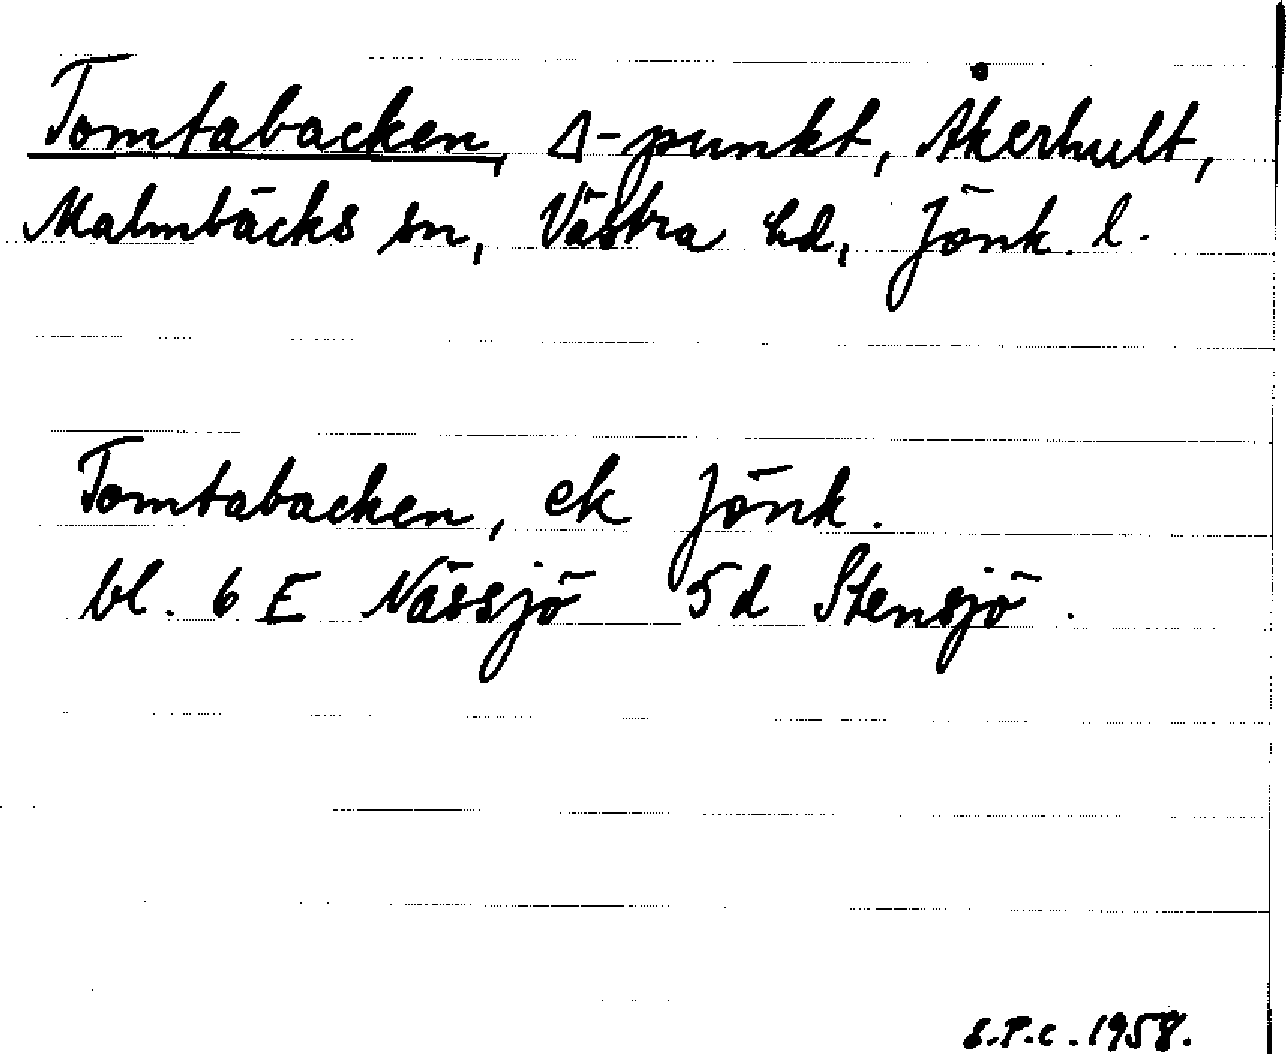 Tomtabacken, Δ-punkt, Åkerhult,
Malmbäcks sn, Västra hd, Jönk. l.
Tomtabacken, ek Jönk.
bl. 6 E Nässjö 5d Stensjö.
S.P.C. 1958.